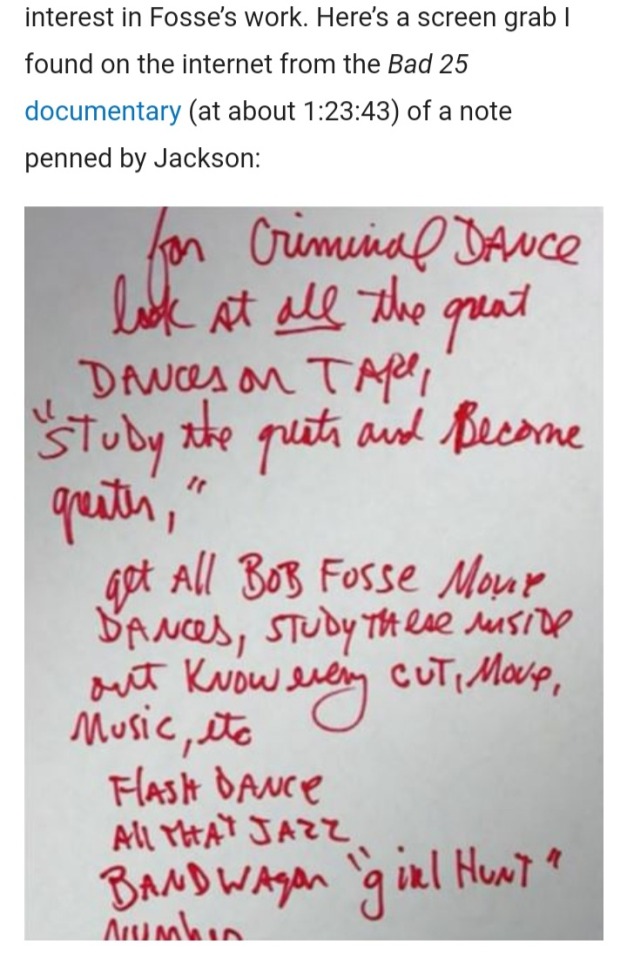 interest in Fosse’s work. Here’s a screen grab I
found on the internet from the Bad 25
documentary (at about 1:23:43) of a note
penned by Jackson:
for Criminal DANCE
look at all the great
DANCES on TAPE,
"STUDY the greats and Become
greater,"
get All BOB FOSSE Movie
DANCES, STUDY THESE INSIDE
out KNOW every CUT, Move,
Music, etc
FlASH DANCE
All THAT JAZZ
BANDWAGON "girl HUNT"
Number